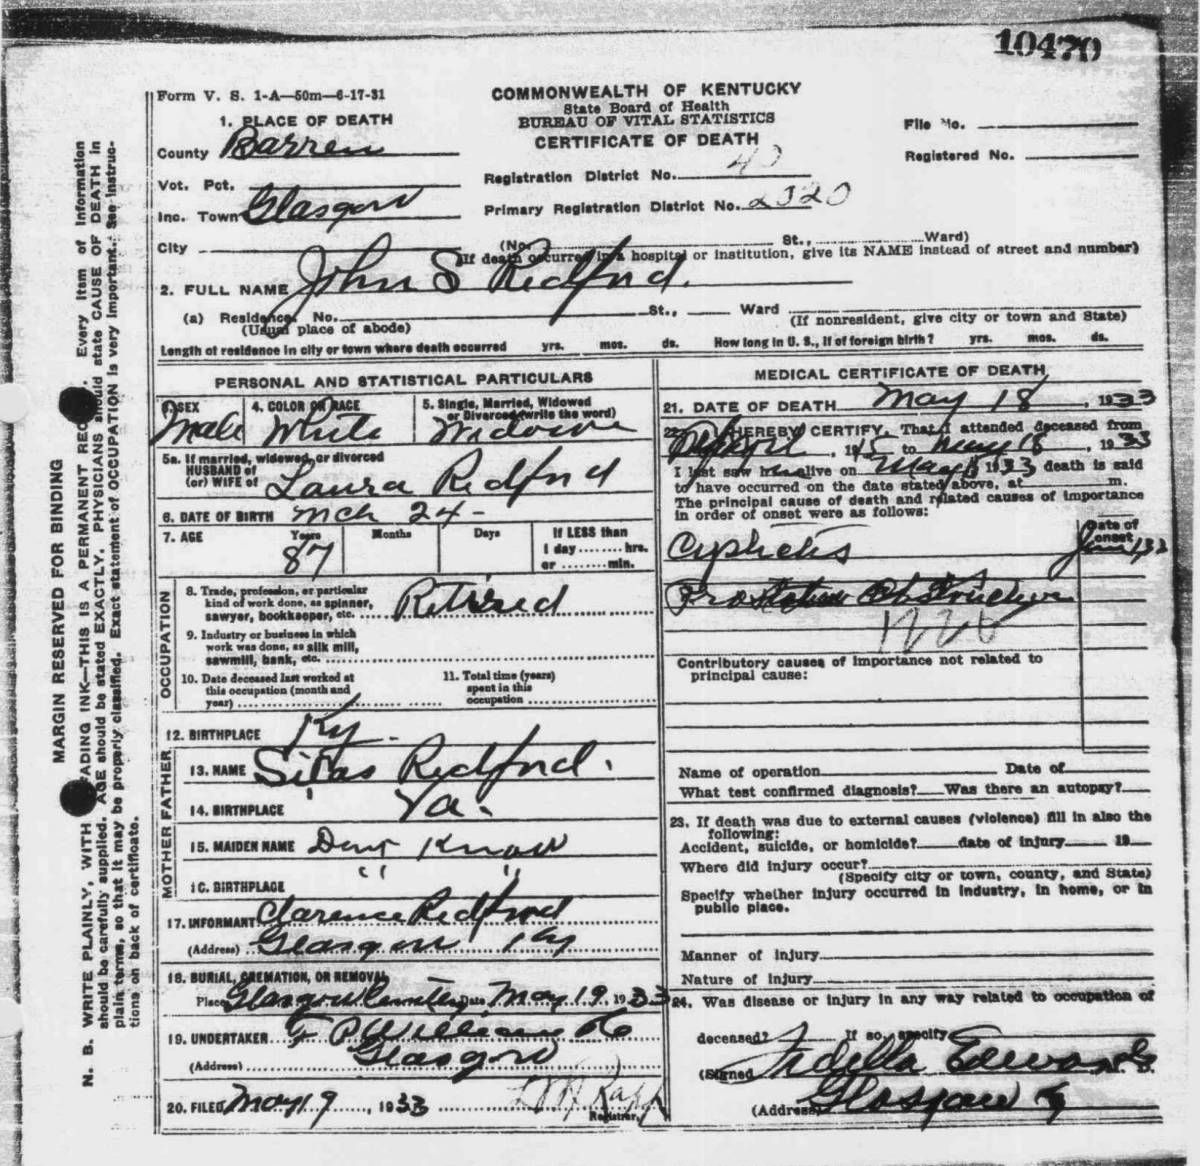 10470
Form V. S. 1-A—50m—6-17-31
COMMONWEALTH OF KENTUCKY
State Board of Health
BUREAU OF VITAL STATISTICS
CERTIFICATE OF DEATH
File No.
Registered No.
1. PLACE OF DEATH
County Barren
Vot. Pct.
Inc. Town Glasgow
City
Registration District No. 40
Primary Registration District No. 2320
(No. St., Ward)
(If death occurred in a hospital or institution, give its NAME instead of street and number)
2. FULL NAME John S Redford.
(a) Residence. No. St., Ward
(Usual place of abode)
(If nonresident, give city or town and State)
Length of residence in city or town where death occurred yrs. mos. ds. How long in U. S., if of foreign birth? yrs. mos. ds.
PERSONAL AND STATISTICAL PARTICULARS
3. SEX Male
4. COLOR OR RACE White
5. Single, Married, Widowed or Divorced (write the word)
5a. If married, widowed, or divorced
HUSBAND of
(or) WIFE of Laura Redford
6. DATE OF BIRTH Mch 24-
7. AGE Years 87 Months Days
If LESS than
1 day ........ hrs.
or ........ min.
OCCUPATION
8. Trade, profession, or particular
kind of work done, as spinner,
sawyer, bookkeeper, etc. Retired
9. Industry or business in which
work was done, as silk mill,
sawmill, bank, etc.
10. Date deceased last worked at
this occupation (month and
year)
11. Total time (years)
spent in this
occupation
12. BIRTHPLACE Ky.
FATHER
13. NAME Silas Redford.
14. BIRTHPLACE Va.
MOTHER
15. MAIDEN NAME Dont Know
16. BIRTHPLACE " "
17. INFORMANT Clarence Redford
(Address) Glasgow Ky
18. BURIAL, CREMATION, OR REMOVAL
Place Glasgow Cemetery Date May 19, 1933
19. UNDERTAKER
(Address) Glasgow
20. FILED May 19, 1933
Registrar.
MEDICAL CERTIFICATE OF DEATH
21. DATE OF DEATH May 18, 1933
22. I HEREBY CERTIFY, That I attended deceased from
April 15 to May 18, 1933
I last saw him alive on May 1933 death is said
to have occurred on the date stated above, at m.
The principal cause of death and related causes of importance
in order of onset were as follows:
Date of
onset
Prostatic Obstruction
Contributory causes of importance not related to
principal cause:
Name of operation Date of
What test confirmed diagnosis? Was there an autopsy?
23. If death was due to external causes (violence) fill in also the
following:
Accident, suicide, or homicide? date of injury 19
Where did injury occur?
(Specify city or town, county, and State)
Specify whether injury occurred in industry, in home, or in
public place.
Manner of injury
Nature of injury
24. Was disease or injury in any way related to occupation of
deceased? If so, specify
(Signed Edwards
(Address) Glasgow Ky
MARGIN RESERVED FOR BINDING
N. B. WRITE PLAINLY, WITH FADING INK—THIS IS A PERMANENT REC . Every item of information
should be carefully supplied. AGE should be stated EXACTLY. PHYSICIANS should state CAUSE OF DEATH in
plain terms, so that it may be properly classified. Exact statement of OCCUPATION is very important. See instruc-
tions on back of certificate.